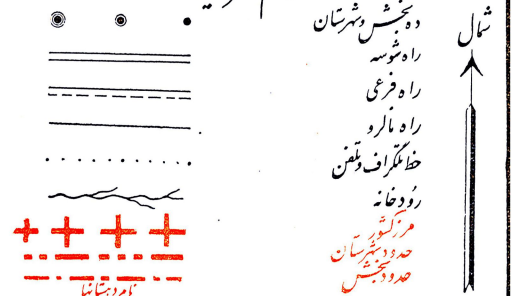 شمال
ده بخش و شهرستان
راه شوسه
راه فرعی
راه مالرو
خط تلگراف و تلفن
رودخانه
مرز کشور
حدود شهرستان
حدود بخش
نام دهستانها